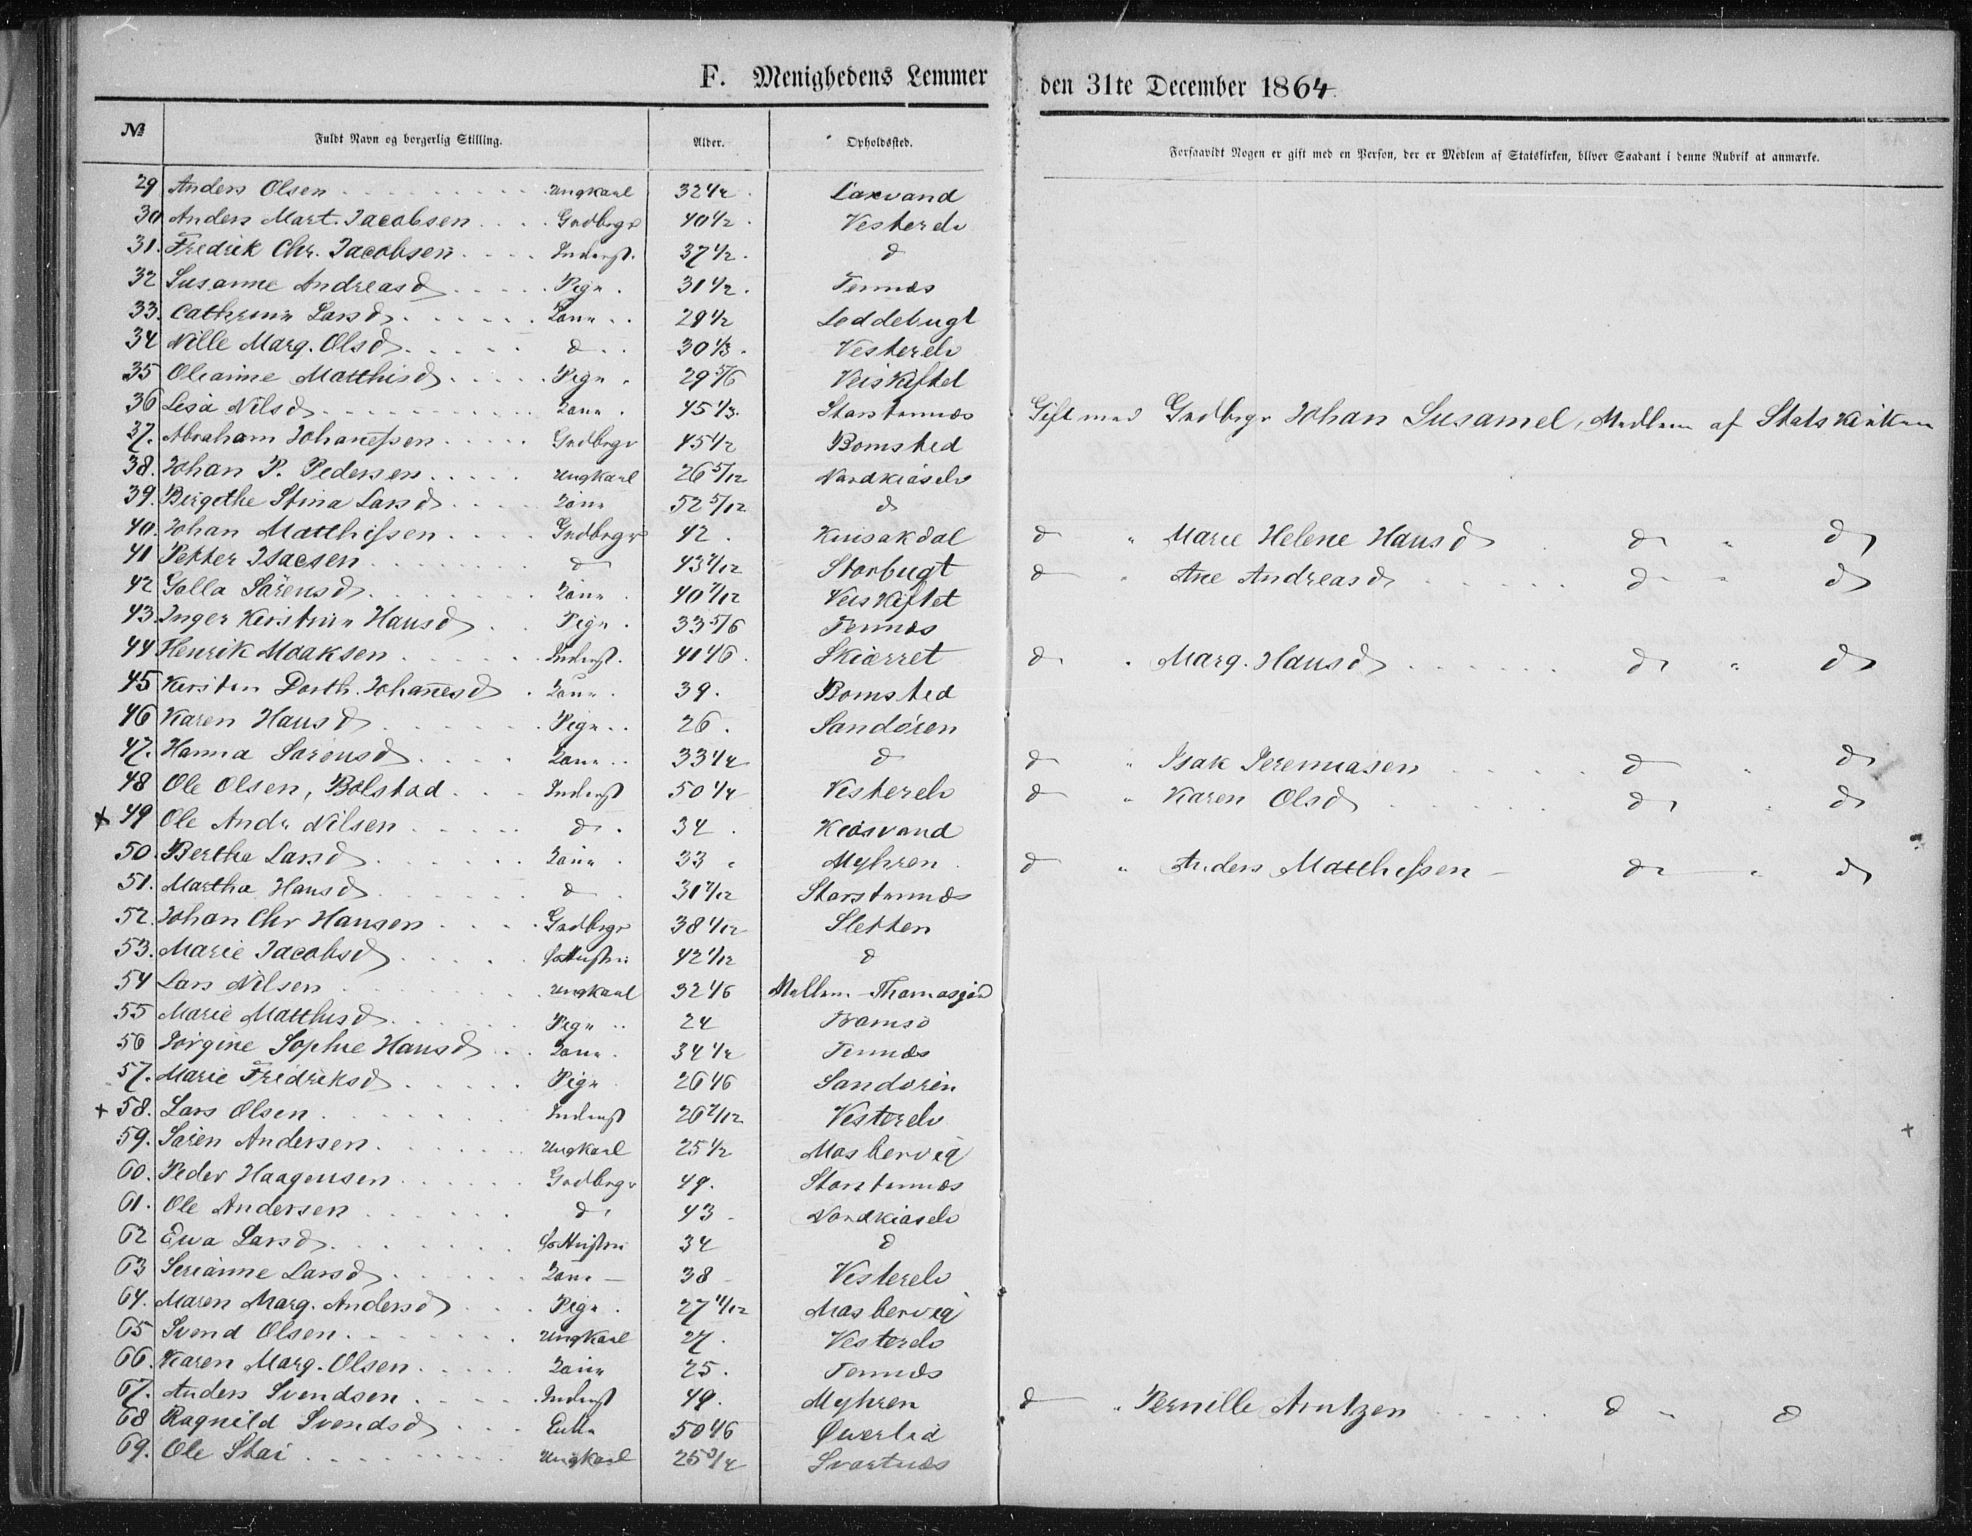 F. Menighedens Lemmer den 31te December 1864.
№ Fuldt Navn og borgerlig Stilling. Alder. Opholdssted. Forsaavidt Nogen er gift med en Person, der er Medlem af Statskirken, bliver Saadant i denne Rubrik at anmærke.
29 Anders Olsen Ungkarl 32 1/4 Laxvand
30 Anders Mart. Jacobsen Grdbrgr 40 1/2 Vesterelv
31. Fredrik Chr. Jacobsen Inderst. 37 1/2 d
32 Susanne Andreasd Pige 31 1/2 Tennæs
33. Cathrine Larsd Kone 29 1/2 Loddebugt
34 Nille Marg. Olsd d 30 1/3 Vesterelv
35 Olianne Matthisd Pige 29 5/6 Veiskiftet
36 Lesa Nilsd Kone 45 1/3 Storstennæs Gift med Grdbrgr Johan Susamel, Medlem af Statskirken
37. Abraham Johanessen Grdbrgr 45 1/2 Bomsted
38. Johan P. Pedersen Ungkarl 26 5/12 Nordkiøselv
39. Birgethe Stina Larsd Kone 52 5/12 d
40. Johan Matthissen Grdbrgr 42 Kiusakdal d " Marie Helene Hansd d " d
41 Petter Isacsen d 43 7/12 Storbugt d " Ane Andreasd d " d
42 Golla Sørensd Kone 40 7/12 Veiskiftet
43. Inger Kirstine Hansd Pige 33 5/6 Tennæs
44 Henrik Moaksen Inderst. 41 1/6 Skiærret d " Marg. Hansd d " d
45 Kirsten Dorth. Johanesd Kone 39. Bomsted
46 Karen Hansd Pige 26. Sandøren
47. Hanna Sørensd Kone 33 1/4 d d " Isak Jeremiasen d " d
48 Ole Olsen, Bolstad Inderst 50 1/4 Vesterelv d " Karen Olsd d " d
+ 49 Ole Andr Nilsen d 34 Kiosvand
50. Berthe Larsd Kone 33 Myhren d " Anders Matthessen d " d
51. Martha Hansd d 31 7/12 Storstennæs
52. Johan Chr Hansen Grdbrgr 38 1/12 Sletten
53. Marie Jacobsd Hustru 42 1/12 d
54 Lars Nilsen Ungkarl 32 1/6 Mellem-Thomasjord
55 Marie Matthisd Pige 24 Tromsø
56 Jørgine Sophie Hansd Kone 34 1/4 Tennæs
57. Marie Fredriksd Pige 26 1/6 Sandøren
+ 58. Lars Olsen Inderst 26 7/12 Vesterelv +
59. Søren Andersen Ungkarl 25 1/2 Masbervig
60. Peder Haagensen Grdbrgr 49. Storstennæs
61. Ole Andersen d 43 Nordkiøselv
62 Eva Larsd Hustru 34 d
63 Serianne Larsd Kone 38 Vesterelv
64. Maren Marg. Andersd Pige 27 11/12 Masbervig
65 Svend Olsen Ungkarl 27. Vesterelv
66. Karen Marg. Olsen Kone 25. Tennæs
67. Anders Svendsen Inderst 49. Myhren d " Pernille Arntzen d " d
68 Ragnild Svendsd Enke 50 1/6 Øverlid
69. Ole Stai Ungkarl 25 3/4 Svartnæs